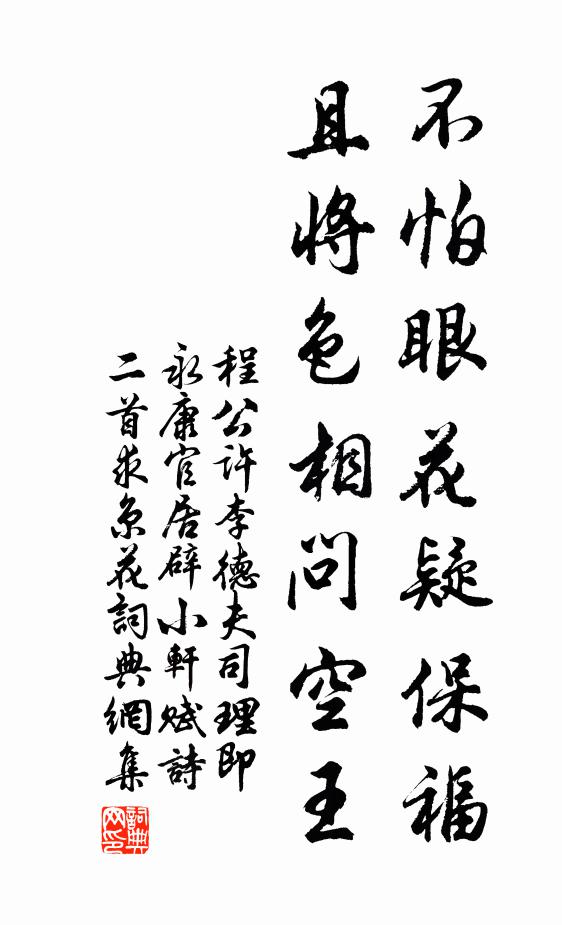 不怕眼花疑保福
且將色相問空王
程公許李德夫司理即
永康官居辟小軒賦詩
二首求索花詞典網集
詞典網印